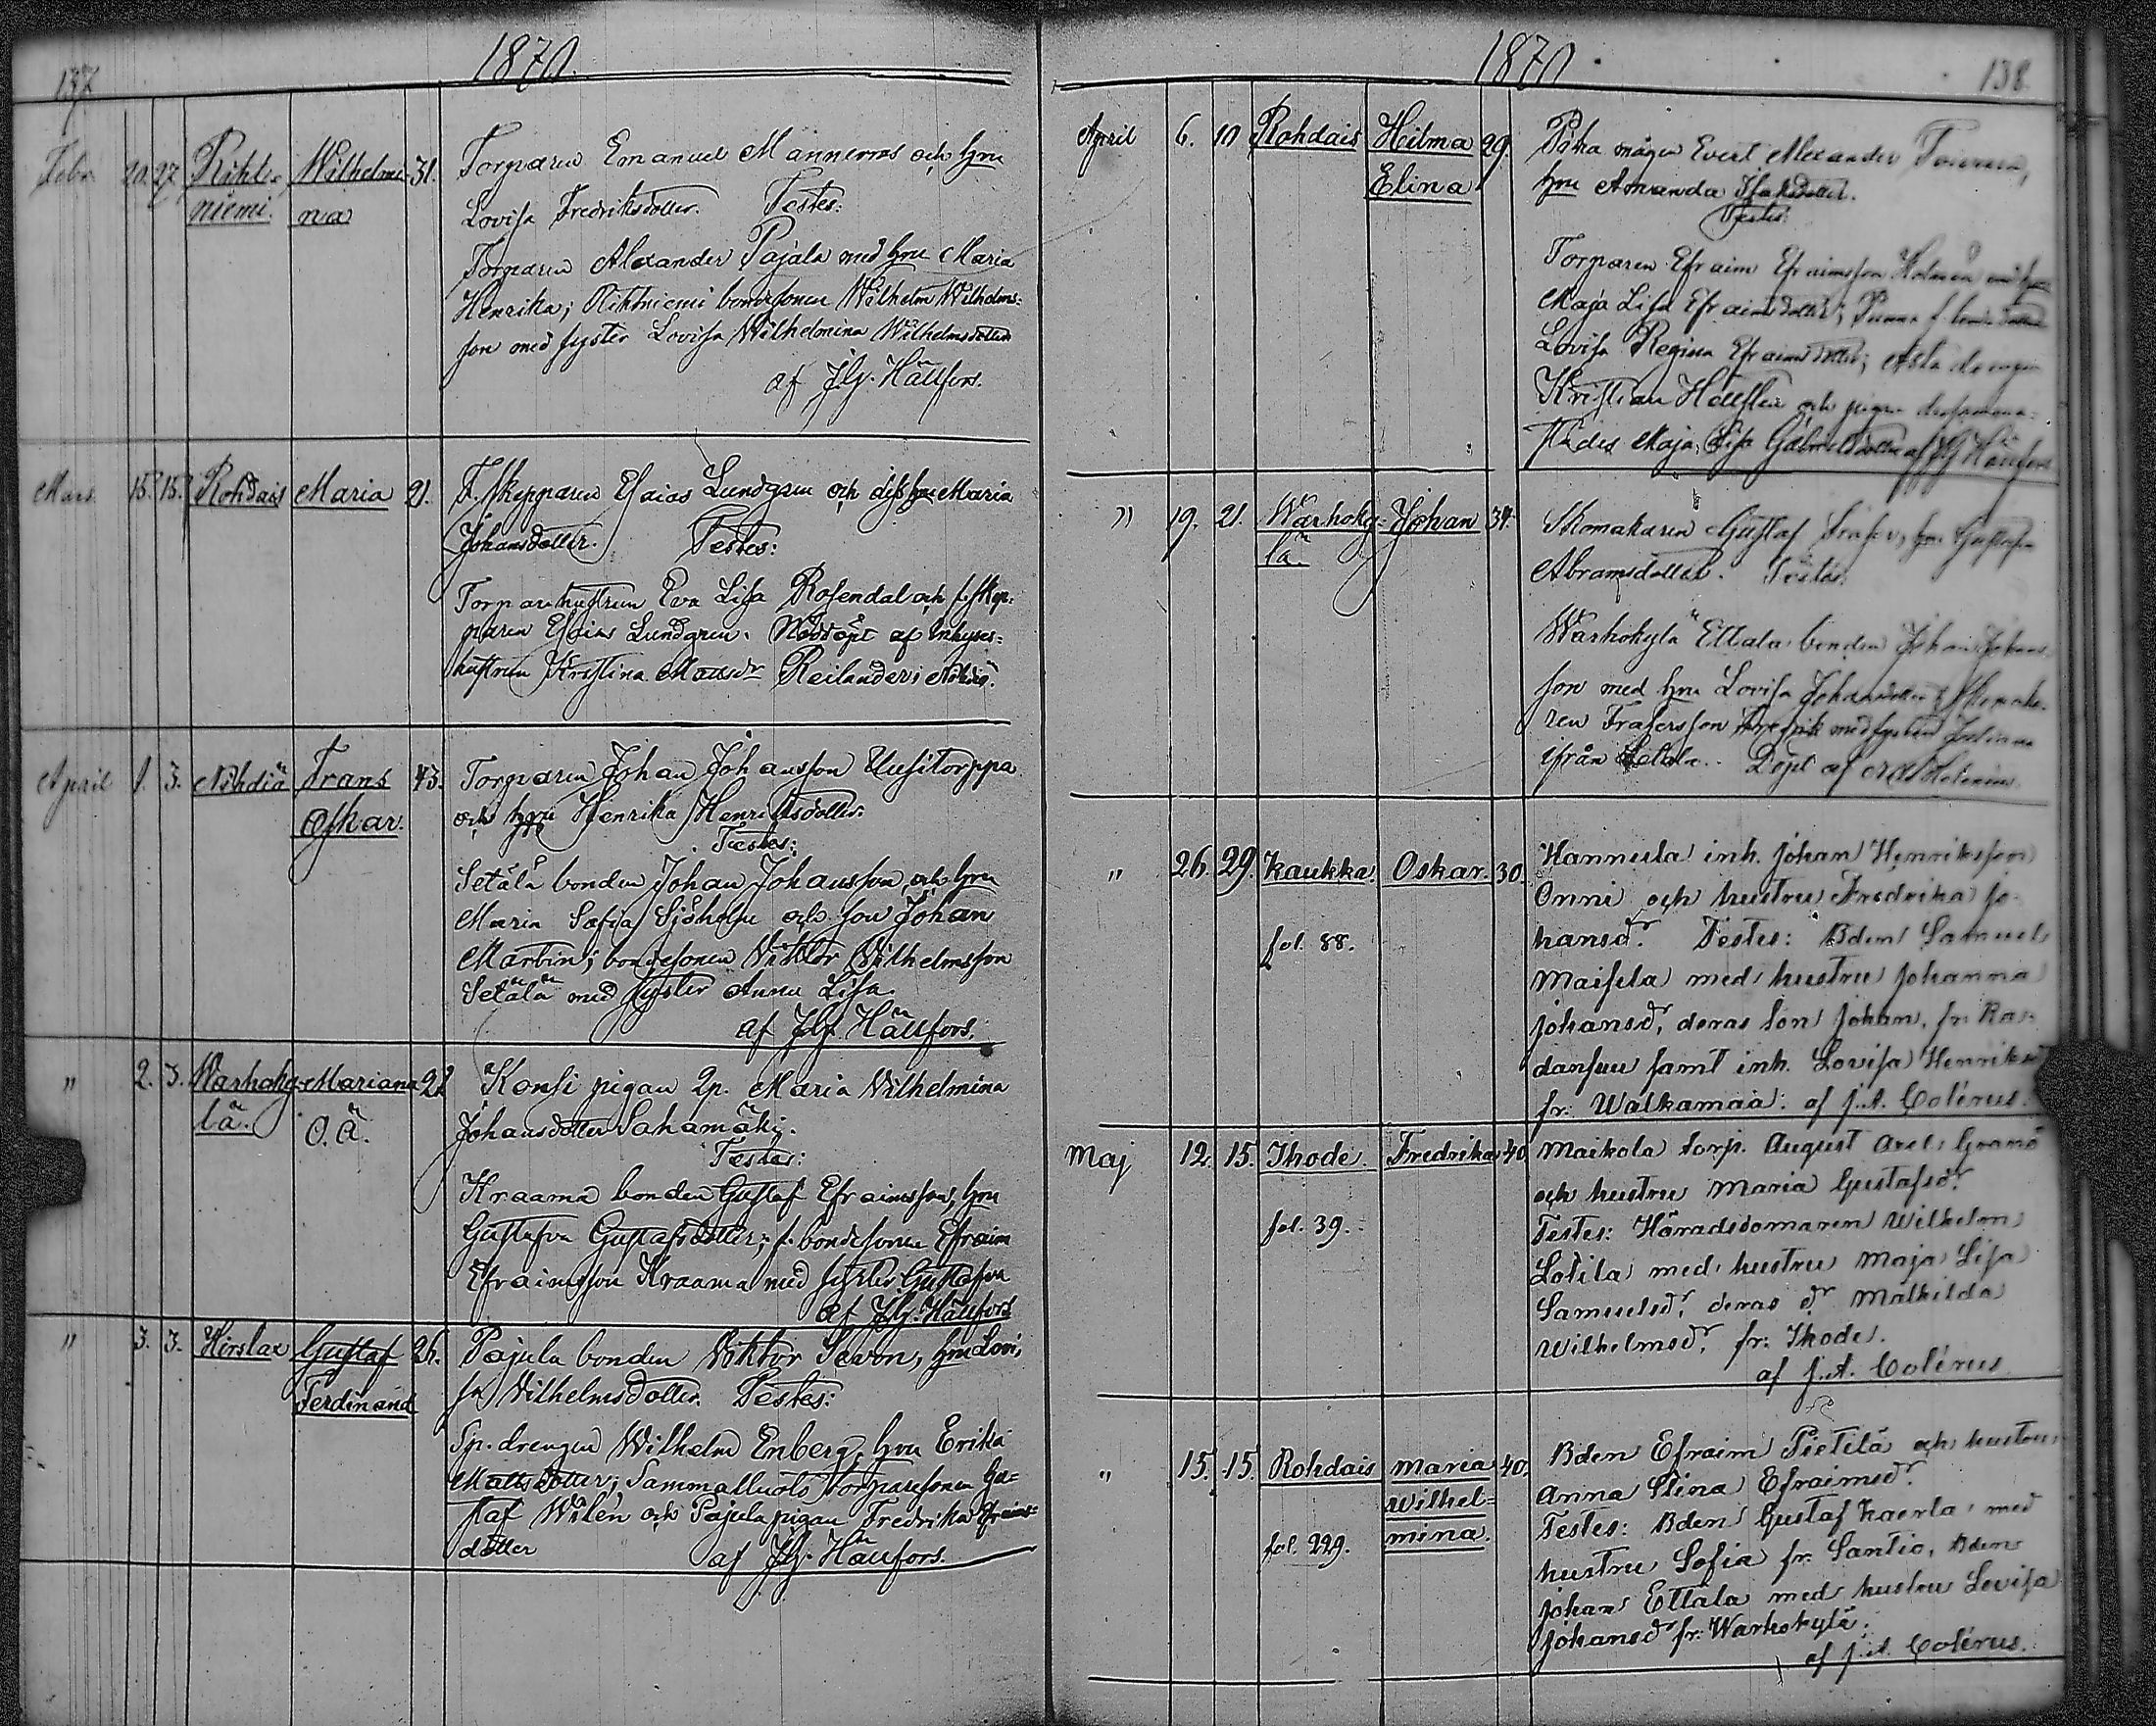 137
1870.
Febr. 20. 27. Rihti= Wilhelmi= 31. Torparen Emanuel Mannerros och hru
niemi. na Lovisa Fredriksdotter. Testes:
Torparen Alexander Pajala med hru Maria
Henrika; Rihtniemi bondesonen Wilhelm Wilhelms=
son med syster Lovisa Wilhelmina Wilhelmsdotter
af J.G. Hällfors.
Mars. 15. 15. Rohdais Maria 21. F. skepparen Esaias Lundgren och dess hru Maria
Johansdotter. Testes:
Torparehustrun Eva Lisa Rosendal och f. skep=
paren Esaias Lundgren. Nöddöpt af Inhyses=
hustrun Kristina Mattsdr Reilander i Nihdiö.
April 1. 3. Nihdiö Frans 43. Torparen Johan Johansson Uusitorppa
Oskar. och hru Henrika Henriksdotter.
Testes:
Setälä bonden Johan Johansson och hru
Maria Sofia Sjöholm och son Johan
Martin; bondesonen Viktor Wilhelmsson
Setälä med syster Anna Lisa.
af J.G. Hällfors.
" 2. 3. Warhoky= Mariana 22 Konsi pigan 2p. Maria Vilhelmina
lä. O.ä. Johansdotter Sahamäki.
Testes:
Kraama bonden Gustaf Efraimsson, hru
Gustafva Gustafsdotter; f. bondesonen Efraim
Efraimsson Kraama med syster Gustafva
af J.G. Hällfors
" 3. 3. Hirslax Gustaf 26. Pajula bonden Viktor Sevon, hru Lovi=
Ferdinand sa Vilhelmsdotter. Testes:
Sp. drengen Wilhelm Enberg, hru Erika
Mattsdotter; Sammalluoto torparesonen Gu=
staf Wilén och Pajula pigan Fredrika Efraims=
dotter af J.G. Hällfors.
1870.
138.
April 6. 10 Rohdais Hilma 29. mågen Evert Alexander
Elina hru Amanda Isaksdotter.
Testes:
Torparen Efraim Efraimsson Holmen med hru
Maja Lisa Efraimsdotter;
Lovisa Regina Efraimsdotter; Asla drengen
Kristian Hellsten och pigan
städes Maja Lisa Gabrielsdotter af J.G. Hällfors
" 19. 21. Warhoky= Johan 34. Skomakaren Gustaf hru Gustafva
lä. Abramsdotter. Testes:
Warhokylä Ettala bonden Johan Johans=
son med hru Lovisa Johansdotter
ren med syster
ifrån Döpt af
" 26. 29. Kaukka. Oskar. 30. Hannula inh. Johan Henriksson
Onni och hustru Fredrika Jo=
fol. 88. hansdr. Testes: Bden Samuel
Maisila med hustru Johanna
Johansdr, deras son Johan, fr. Ra=
dansuu samt inh. Lovisa Henriksdr
fr: Walkamaa. af J.A. Colérus.
Maj 12. 15. Ihode. Fredrika 40 Maikola torp. August Axel Granö
och hustru Maria Gustafsdr.
fol. 39. Testes: Häradsdomaren Wilhelm
Lotila med hustru Maja Lisa
Samuelsdr, deras dr Mathilda
Wilhelmsdr, fr: Ihode.
af J.A. Colérus
" 15. 15. Rohdais Maria 40. Bden Efraim Pietilä och hustru
Wilhel= Anna Stina Efraimsdr.
fol. 229. mina. Testes: Bden Gustaf Kaerla med
hustru Sofia fr. Santio, Bden
Johan Ettala med hustru Lovisa
Johansdr fr: Warhokylä.
af J.A. Colérus.